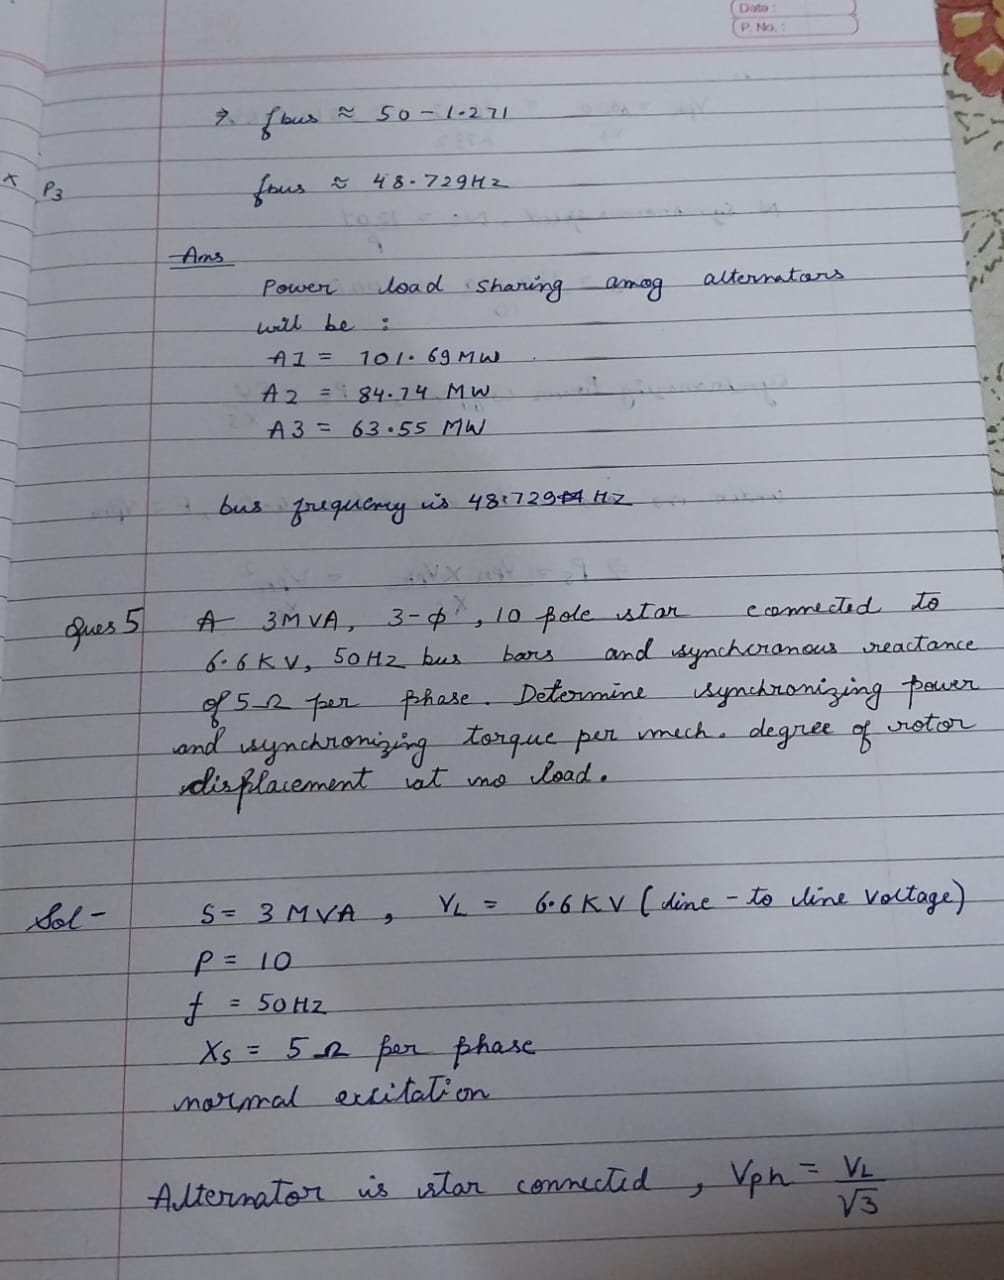 Date :
P. No. :
→ fbus ≈ 50 - 1.271
P3
fbus ≈ 48.729Hz
Ans
Power load sharing amog alternators
will be :
A1 = 101.69 MW
A2 = 84.74 MW
A3 = 63.55 MW
bus frequency is 48.729 Hz
Ques 5 A 3MVA, 3-ϕ, 10 pole star connected to
6.6KV, 50Hz bus bars and synchronous reactance
of 5Ω per phase. Determine synchronizing power
and synchronizing torque per mech. degree of rotor
displacement at no load.
Sol - S = 3 MVA, VL = 6.6KV (line - to line voltage)
P = 10
f = 50Hz
Xs = 5Ω per phase
normal excitation
Alternator is star connected, Vph = VL/√3